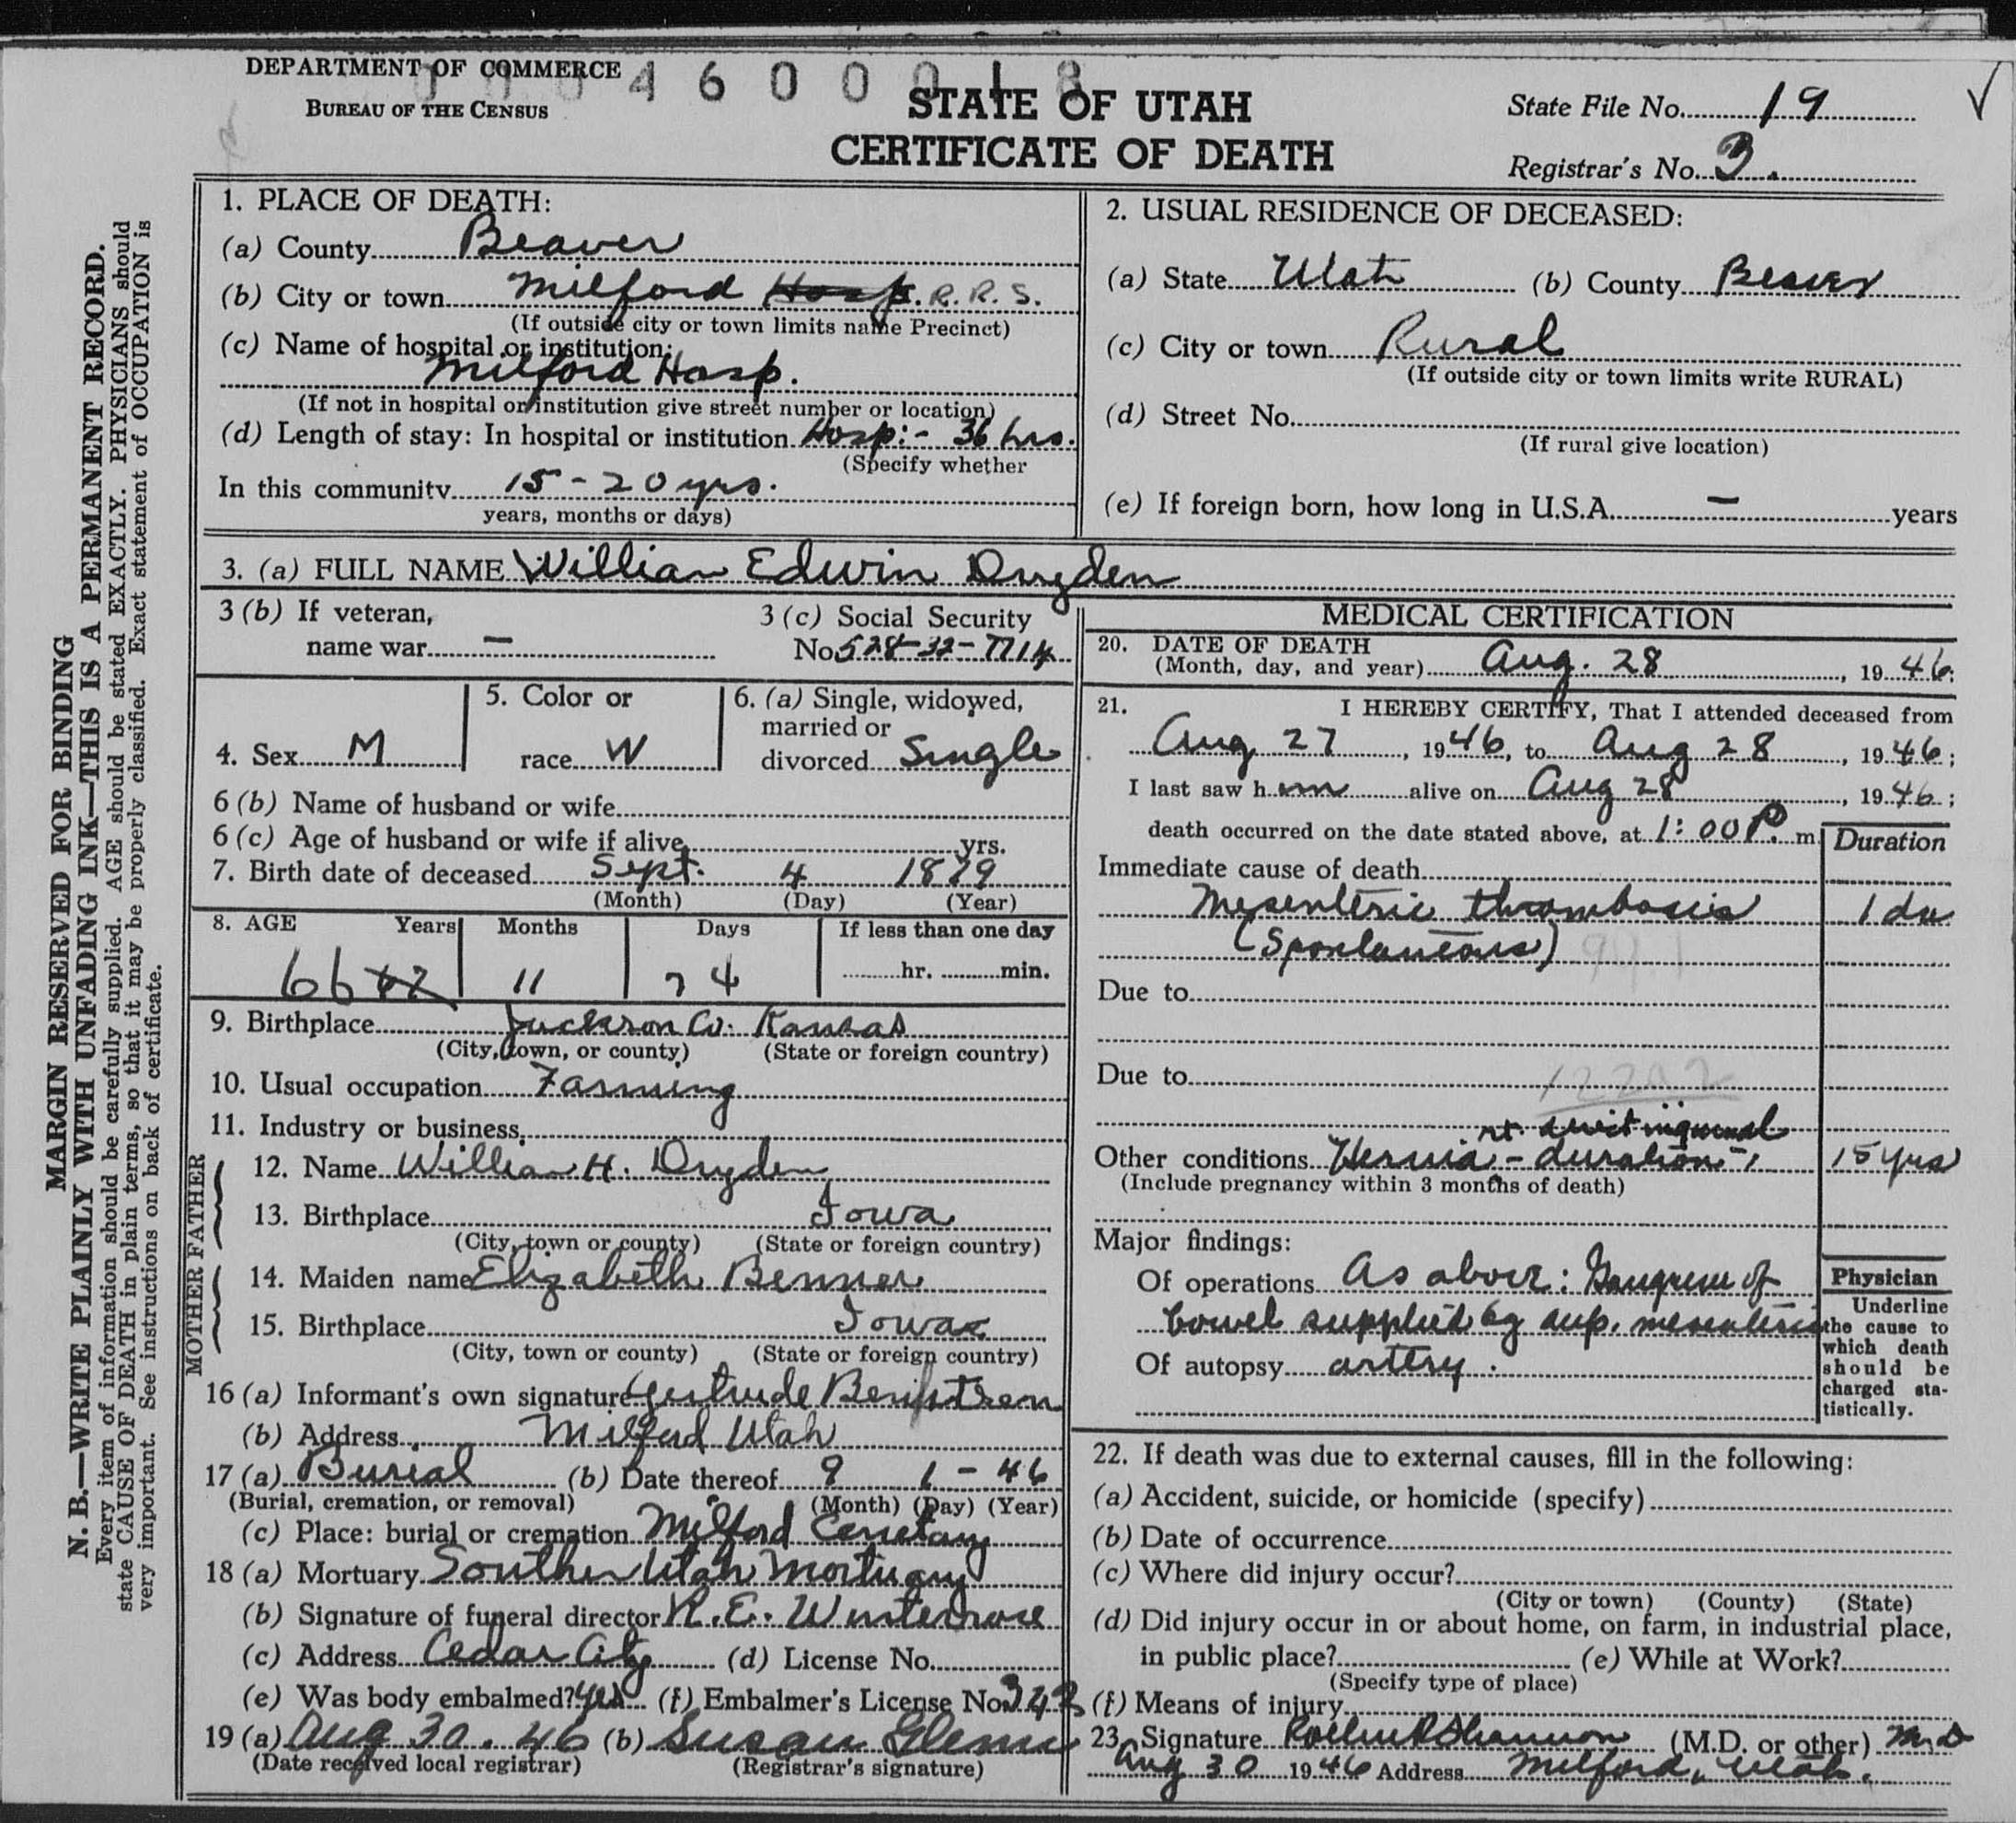 DEPARTMENT OF COMMERCE
BUREAU OF THE CENSUS
STATE OF UTAH
CERTIFICATE OF DEATH
State File No. 19
Registrar's No. 3.
MARGIN RESERVED FOR BINDING
N. B.—WRITE PLAINLY WITH UNFADING INK—THIS IS A PERMANENT RECORD.
Every item of information should be carefully supplied. AGE should be stated EXACTLY. PHYSICIANS should
state CAUSE OF DEATH in plain terms, so that it may be properly classified. Exact statement of OCCUPATION is
very important. See instructions on back of certificate.
1. PLACE OF DEATH:
(a) County Beaver
(b) City or town Milford Hosp. R.R.S.
(If outside city or town limits name Precinct)
(c) Name of hospital or institution:
Milford Hosp.
(If not in hospital or institution give street number or location)
(d) Length of stay: In hospital or institution Hosp:- 36 hrs.
(Specify whether
In this community 15-20 yrs.
years, months or days)
2. USUAL RESIDENCE OF DECEASED:
(a) State Utah (b) County Beaver
(c) City or town Rural
(If outside city or town limits write RURAL)
(d) Street No.
(If rural give location)
(e) If foreign born, how long in U.S.A. — years
3. (a) FULL NAME William Edwin Dryden
3 (b) If veteran,
name war —
3 (c) Social Security
No. 528-32-7714
4. Sex M
5. Color or
race W
6. (a) Single, widowed,
married or
divorced Single
6 (b) Name of husband or wife
6 (c) Age of husband or wife if alive yrs.
7. Birth date of deceased Sept. 4 1879
(Month) (Day) (Year)
8. AGE Years Months Days If less than one day
66 11 24 hr. min.
9. Birthplace Jackson Co. Kansas
(City, town, or county) (State or foreign country)
10. Usual occupation Farming
11. Industry or business
FATHER
12. Name William H. Dryden
13. Birthplace Iowa
(City, town or county) (State or foreign country)
MOTHER
14. Maiden name Elizabeth Benner
15. Birthplace Iowa
(City, town or county) (State or foreign country)
16 (a) Informant's own signature Gertrude
(b) Address Milford Utah
17 (a) Burial (b) Date thereof 9 1-46
(Burial, cremation, or removal) (Month) (Day) (Year)
(c) Place: burial or cremation Milford Cemetary
18 (a) Mortuary Southern Utah Mortuary
(b) Signature of funeral director R. E. Winterrose
(c) Address Cedar City (d) License No.
(e) Was body embalmed? Yes (f) Embalmer's License No. 343
19 (a) Aug 30. 46 (b) Susan
(Date received local registrar) (Registrar's signature)
MEDICAL CERTIFICATION
20. DATE OF DEATH
(Month, day, and year) Aug. 28, 1946.
21. I HEREBY CERTIFY, That I attended deceased from
Aug 27, 1946, to Aug 28, 1946;
I last saw him alive on Aug 28, 1946;
death occurred on the date stated above, at 1:00 P. m.
Duration
Immediate cause of death
Mesenteric thrombosis 1 da
(Spontaneous)
Due to
Due to
rt. direct inguinal
Other conditions Hernia - duration - 15 yrs
(Include pregnancy within 3 months of death)
Major findings:
Of operations As above: Gangrene of
bowel supplied by sup. mesenteric
Of autopsy artery.
Physician
Underline
the cause to
which death
should be
charged sta-
tistically.
22. If death was due to external causes, fill in the following:
(a) Accident, suicide, or homicide (specify)
(b) Date of occurrence
(c) Where did injury occur?
(City or town) (County) (State)
(d) Did injury occur in or about home, on farm, in industrial place,
in public place? (e) While at Work?
(Specify type of place)
(f) Means of injury
23. Signature Shannon (M.D. or other) M.D
Aug 30 1946 Address Milford, Utah.